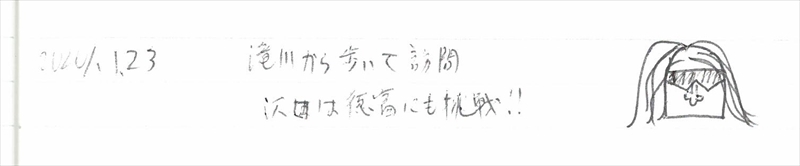 2020/.1.23 滝川から歩いて訪問
次回は徳富にも挑戦!!